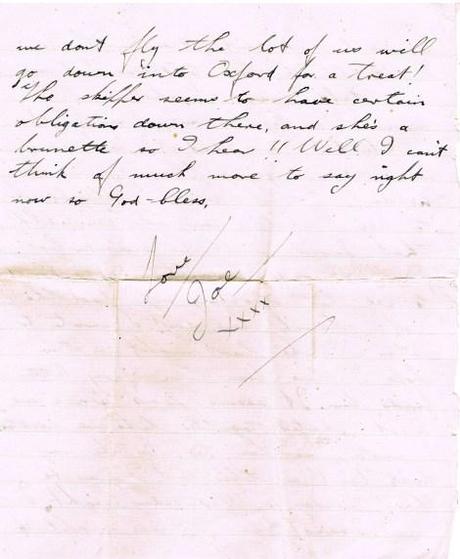 we don't fly the lot of us will
go down into Oxford for a treat!
The skipper seems to have certain
obligations down there, and she's a
brunette so I hear!! Well I can't
think of much more to say right
now so God-bless,
Love
Joe
xxxx